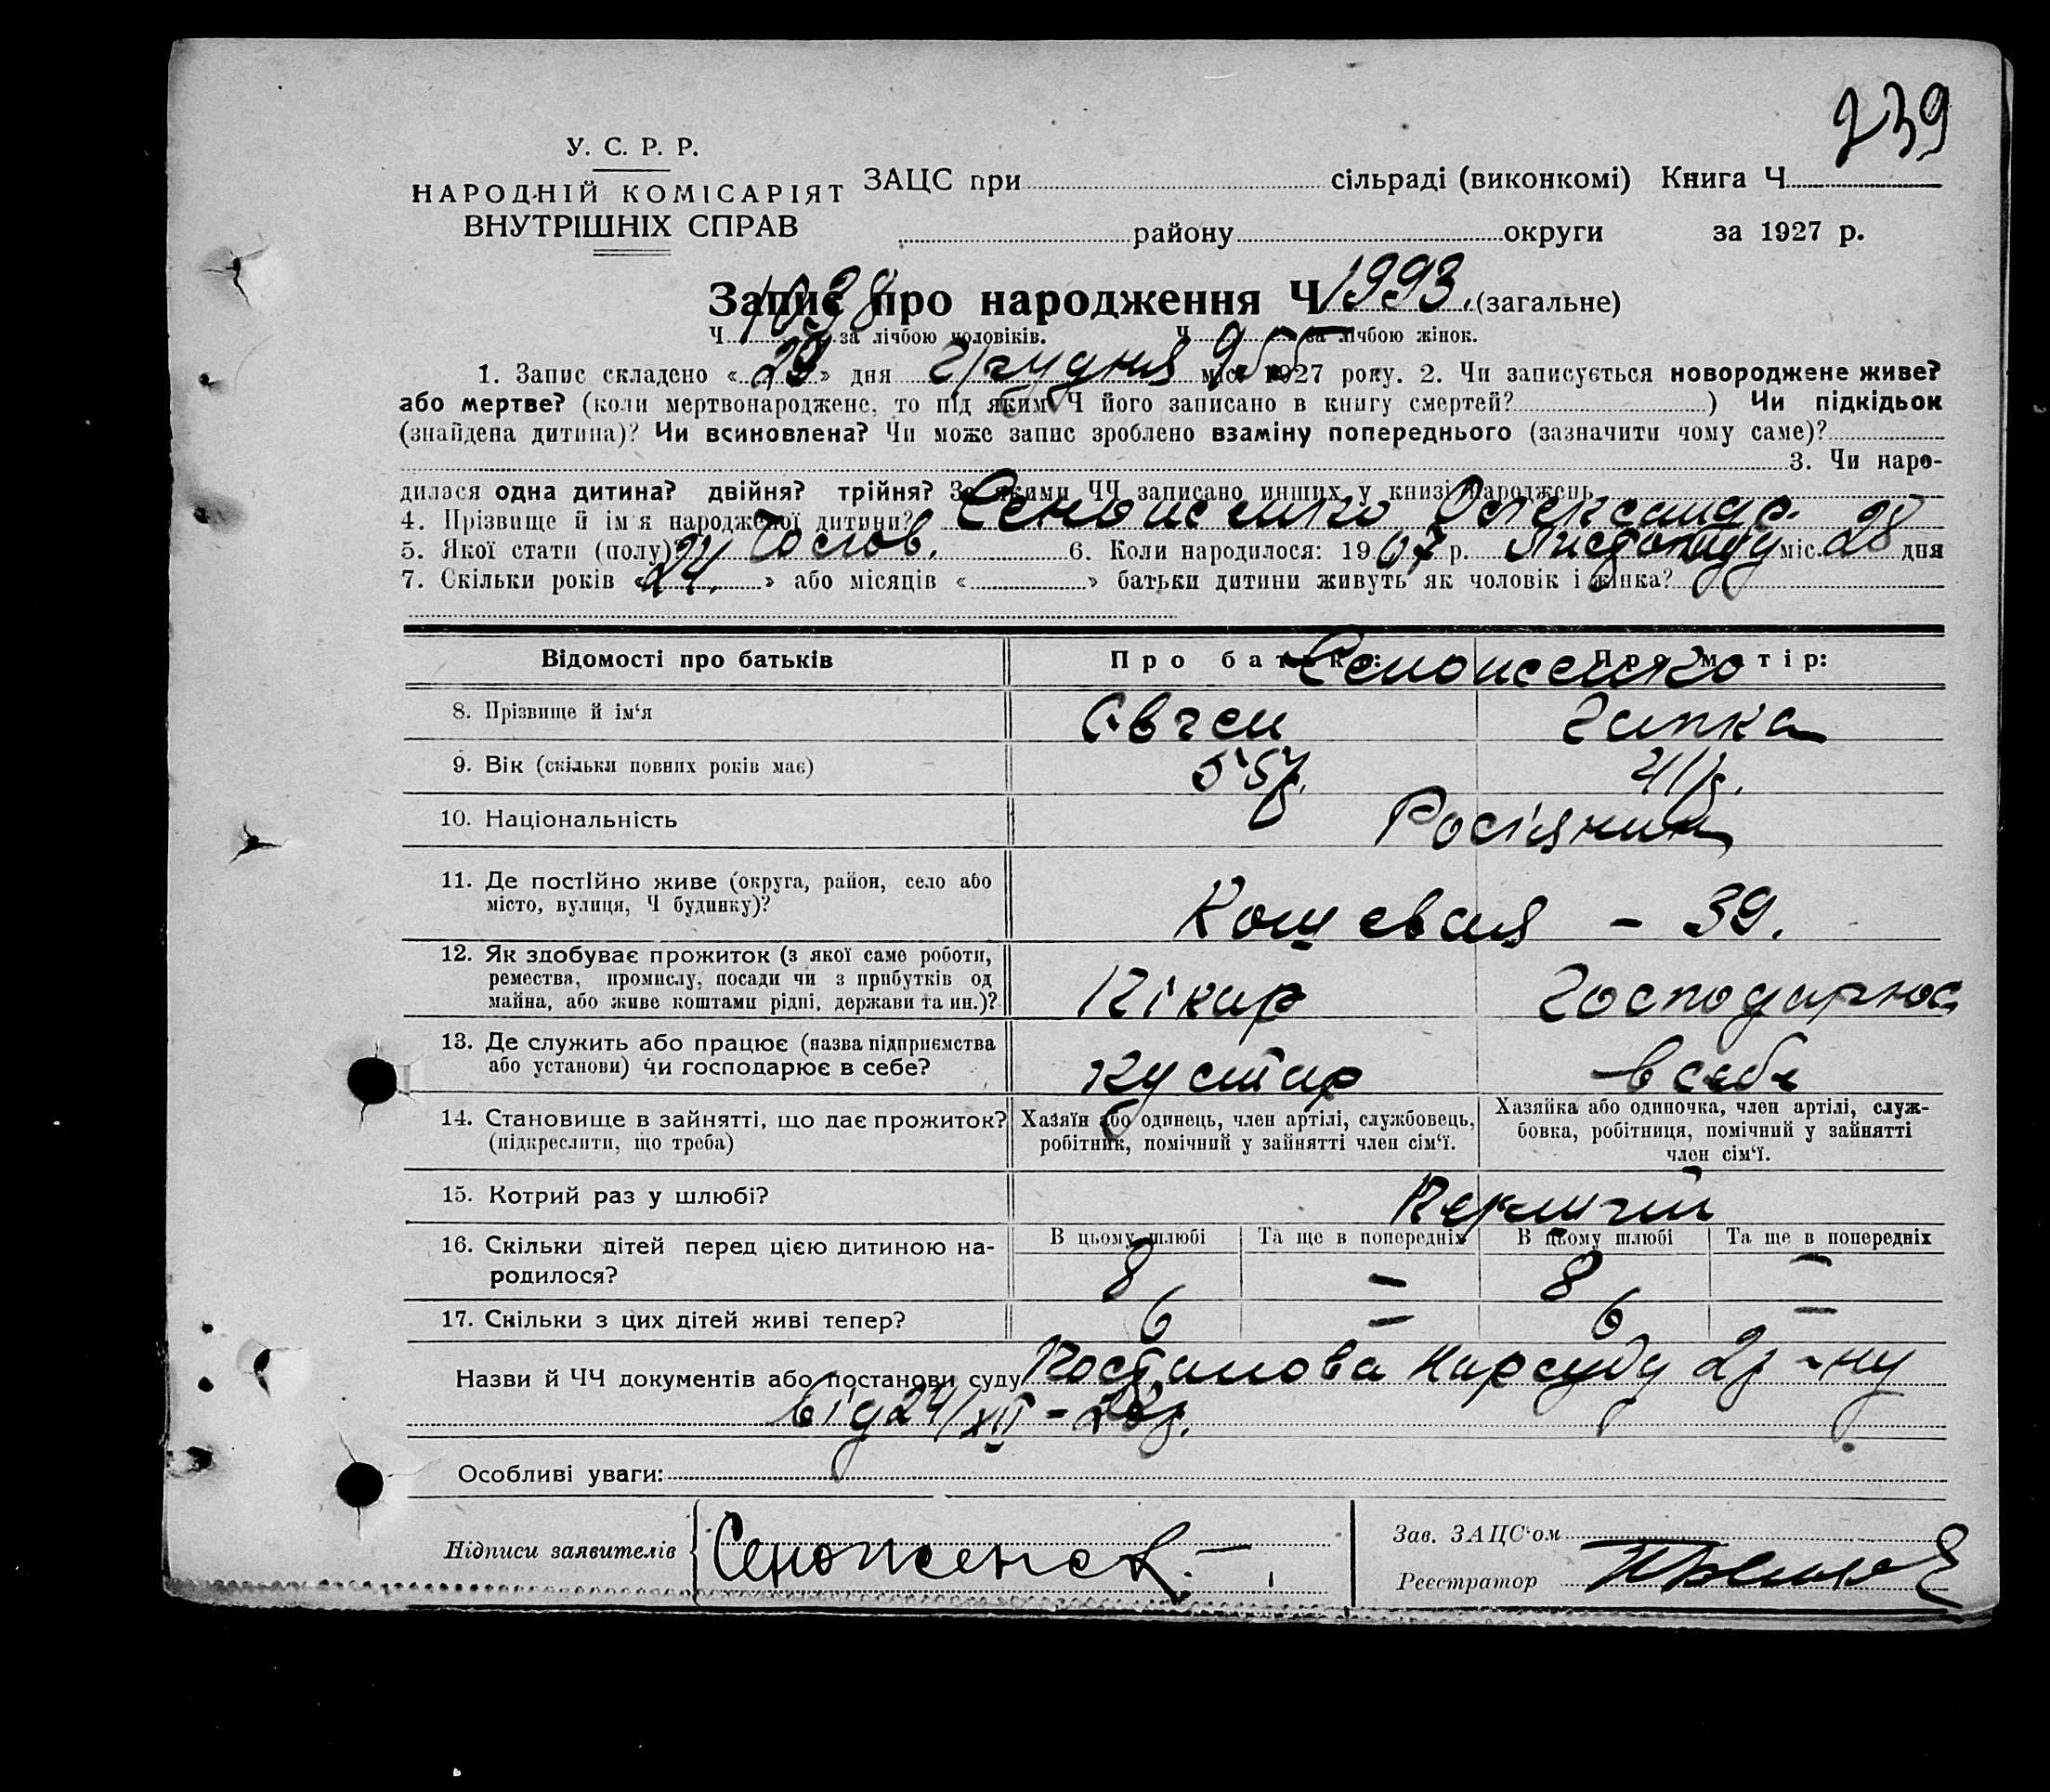 239
У. С. Р. Р.
НАРОДНІЙ КОМІСАРІЯТ
ВНУТРІШНІХ СПРАВ
ЗАЦС при сільраді (виконкомі) Книга Ч
району округи за 1927 р.
Запис про народження Ч 1993. (загальне)
Ч 1038 за лічбою чоловіків. Ч 955 за лічбою жінок.
1. Запис складено « 29 » дня Грудня міс. 1927 року. 2. Чи записується новороджене живе?
або мертве? (коли мертвонароджене, то під яким Ч його записано в книгу смертей? ) Чи підкідьок
(знайдена дитина)? Чи всиновлена? Чи може запис зроблено взаміну попереднього (зазначити чому саме)?
3. Чи наро-
дилася одна дитина? двійня? трійня? За якими ЧЧ записано инших у книзі народжень
4. Прізвище й ім'я народженої дитини? Сеноженко Олександр.
5. Якої стати (полу) Чолов. 6. Коли народилося: 1907 р. Листопаду міс. 28 дня
7. Скільки років « 24. » або місяців « » батьки дитини живуть як чоловік і жінка?
Відомості про батьків Про батька: Про матір:
Сеноженко
8. Прізвище й ім‘я Овчен Ганка
9. Вік (скільки повних років має) 55р. 41р.
10. Національність Росіянин
11. Де постійно живе (округа, район, село або
місто, вулиця, Ч будинку)? Кошевая – 39.
12. Як здобуває прожиток (з якої саме роботи,
ремества, промислу, посади чи з прибутків од
майна, або живе коштами рідні, держави та ин.)? Пікар Господарює
13. Де служить або працює (назва підприємства
або установи) чи господарює в себе? кустар в себе
14. Становище в зайнятті, що дає прожиток?
(підкреслити, що треба)
Хазяїн або одинець, член артілі, службовець,
робітник, помічний у зайнятті член сім‘ї.
Хазяйка або одиночка, член артілі, служ-
бовка, робітниця, помічний у зайнятті
член сім‘ї.
15. Котрий раз у шлюбі? Перший
В цьому шлюбі Та ще в попередніх В цьому шлюбі Та ще в попередніх
16. Скільки дітей перед цією дитиною на-
родилося? 8 – 8 –
17. Скільки з цих дітей живі тепер? 6 – 6 –
Назви й ЧЧ документів або постанови суду Постанова Нарсуду 2р-ну
від 24/XII –
Особливі уваги:
Підписи заявителів Сеноженск.
Зав. ЗАЦС‘ом
Реєстратор